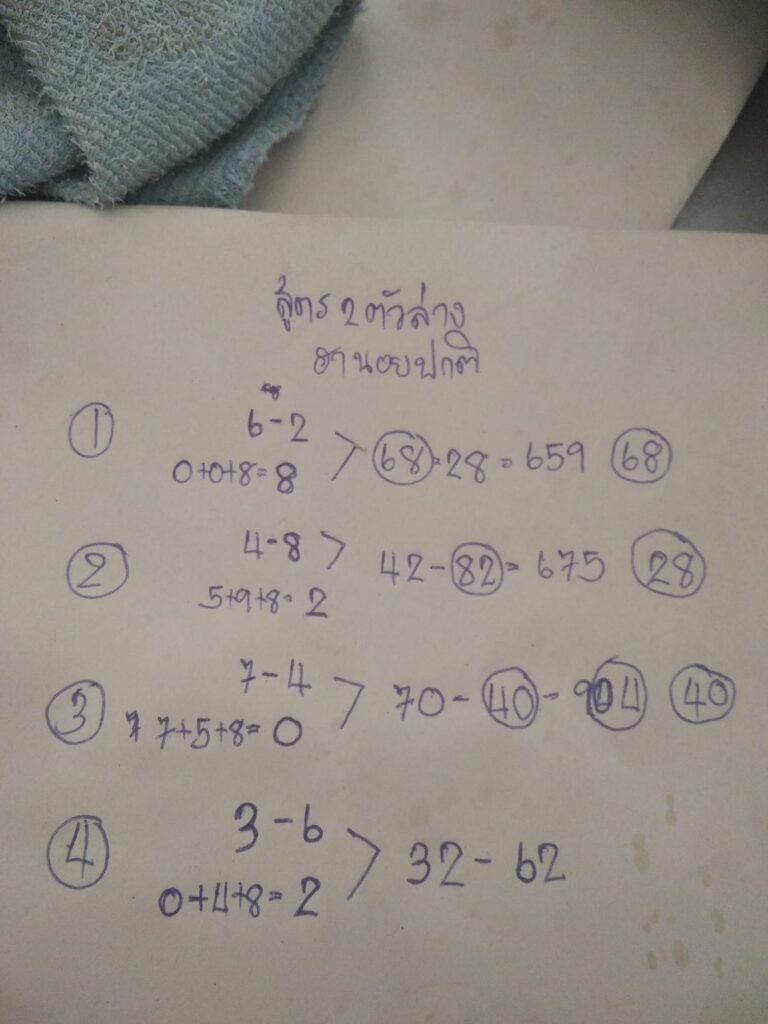 สูตร 2 ตัวล่าง
ฮานอยปกติ
① 6-2
0+0+8=8 > 68=28=659 68
② 4-8 > 42-82=675 28
5+9+8=2
③ 7-4 > 70-40-904 40
7+5+8=0
④ 3-6 > 32-62
0+4+8=2